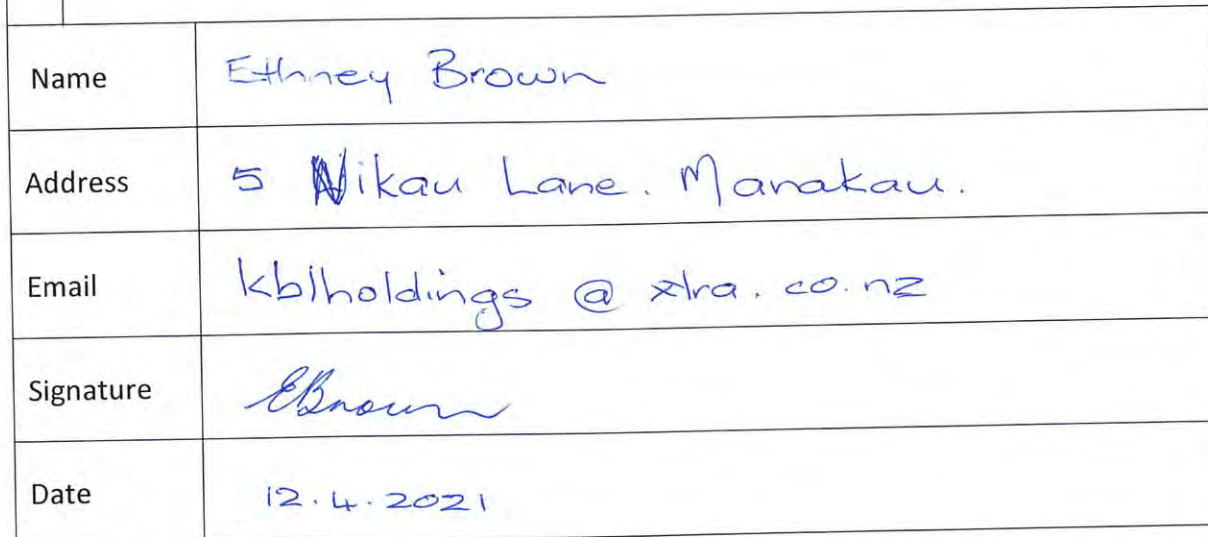 Name Ethney Brown
Address 5 Nikau Lane. Manakau.
Email kblholdings @ xtra.co.nz
Signature EBrown
Date 12.4.2021